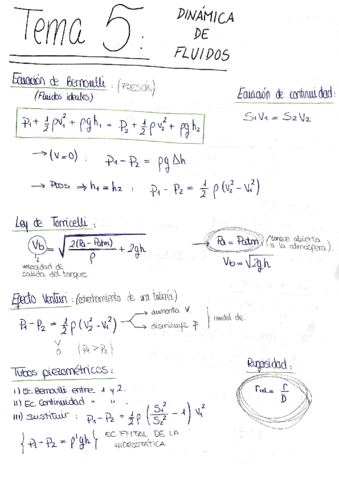 Tema 5: DINÁMICA DE FLUIDOS
Ecuación de Bernoulli: (PRESIÓN)
(Fluidos ideales)
P₁ + ½ρv₁² + ρgh₁ = P₂ + ½ρv₂² + ρgh₂
→ (v=0) : P₁ - P₂ = ρgΔh
→ Ptos → h₁ = h₂ : P₁ - P₂ = ½ρ(v₂² - v₁²)
Ecuación de continuidad:
S₁V₁ = S₂V₂
Ley de Torricelli:
V_b = √(2(Pa - Patm)/ρ + 2gh)
velocidad de
salida del tanque
→ Pa = Patm : (tanque abierto
a la atmósfera)
V_b = √2gh
Efecto Venturi: (estrechamiento de una tubería)
P₁ - P₂ = ½ρ(V₂² - V₁²)
aumenta V.
disminuye P
caudal de
V
0
(P₁ > P₂)
Tubos piezométricos:
i) Ec. Bernoulli entre 1 y 2.
ii) Ec. Continuidad " "
iii) Sustituir : P₁ - P₂ = ½ρ(S₁²/S₂² - 1) v₁²
{P₁ - P₂ = ρ'gh} EC. FMTAL DE LA
HIDROSTÁTICA
Rugosidad:
r_rel = r/D